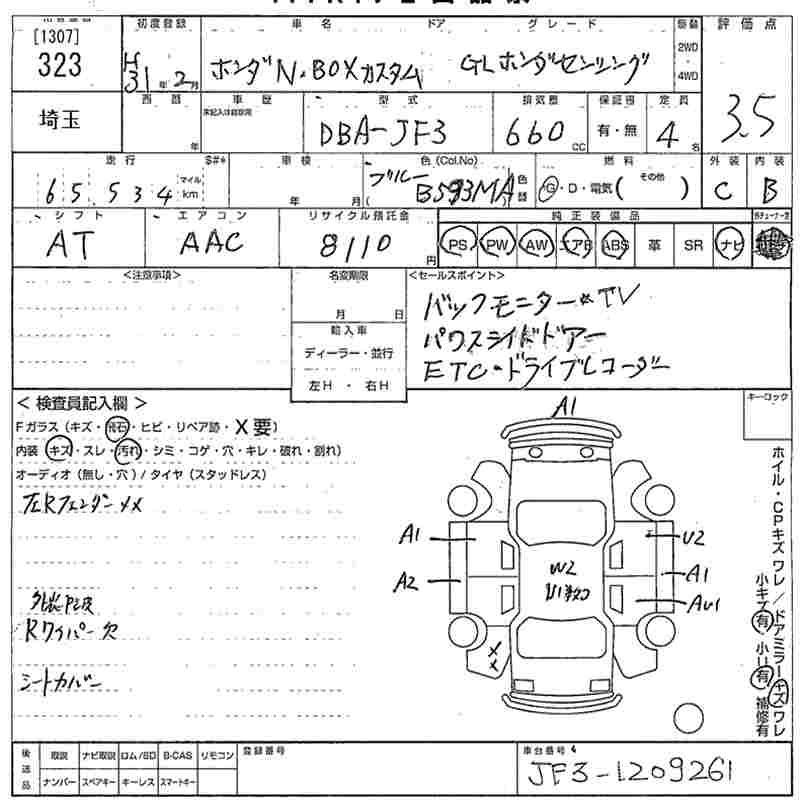 [1307]
323
初度登録
車名
ドア
グレード
駆動
評価点
H31年2月
ホンダ N・BOXカスタム
GLホンダセンシング
2WD
・
4WD
3.5
埼玉
車歴
未記入は自家用
年
型式
DBA-JF3
排気量
660 CC
保証書
有・無
定員
4名
走行
65,534
マイル
km
S#*
車検
年 月
色(Col.No)
ブルー
B593MA
燃料
G・D・電気( その他 )
外装
C
内装
B
シフト
AT
エアコン
AAC
リサイクル預託金
8110 円
純正装備品
PS PW AW エアB ABS 革 SR ナビ
<注意事項>
名変期限
月 日
輸入車
ディーラー・並行
左H・右H
<セールスポイント>
バックモニター・TV
パワスライドドアー
ETC・ドライブレコーダー
<検査員記入欄>
Fガラス(キズ・飛石・ヒビ・リペア跡・X要)
内装(キズ・スレ・汚れ・シミ・コゲ・穴・キレ・破れ・割れ)
オーディオ(無し・穴)/タイヤ(スタッドレス)
Rワイパー欠
シートカバー
キーロック
A1
A1
A2
U2
A1
AU1
W2
U1数コ
XX
ホイル・CPキズ ワレ/ドアミラー キズ ワレ
小キズ有、小U有、補修有
後送品
取説 ナビ取説 ロム/SD B-CAS リモコン
ナンバー スペアキー キーレス スマートキー
登録番号
車台番号
JF3-1209261